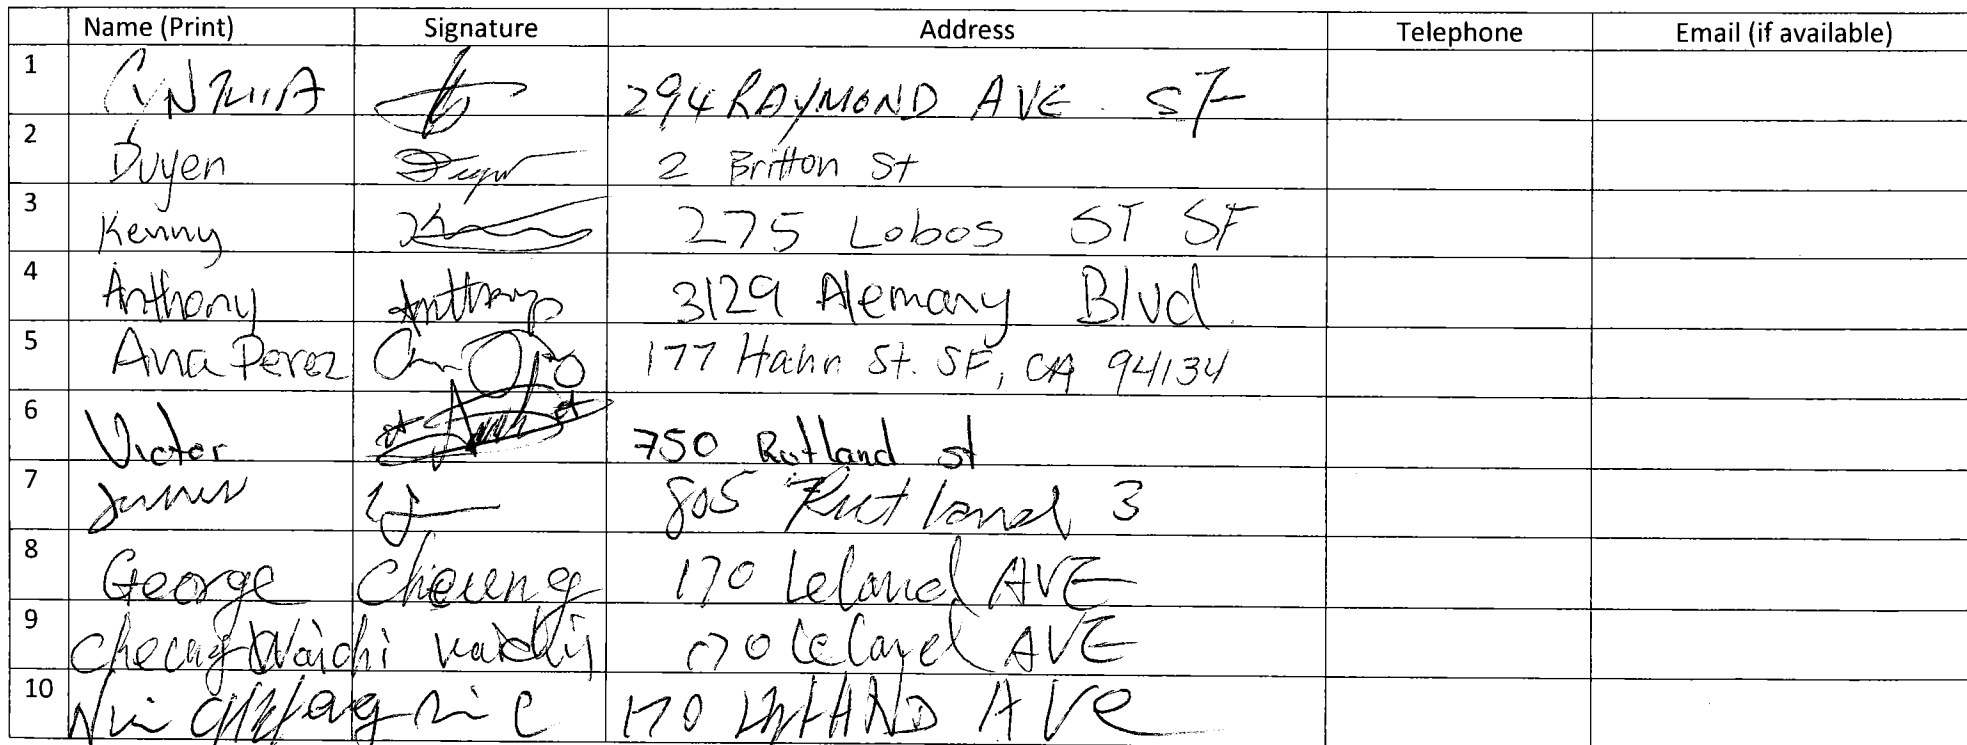 Name (Print) Signature Address Telephone Email (if available)
1 CYNTHIA 294 RAYMOND AVE. SF
2 Duyen Duyen 2 Britton St
3 Kenny 275 Lobos ST SF
4 Anthony Anthony 3129 Alemany Blvd.
5 Ana Perez 177 Hahn St. SF, CA 94134
6 Victor 750 Rutland st
7 805 Rutland 3
8 George Cheung 170 Leland AVE
9 Cheung Waichi Waichi 170 Leland AVE
10 170 AVE